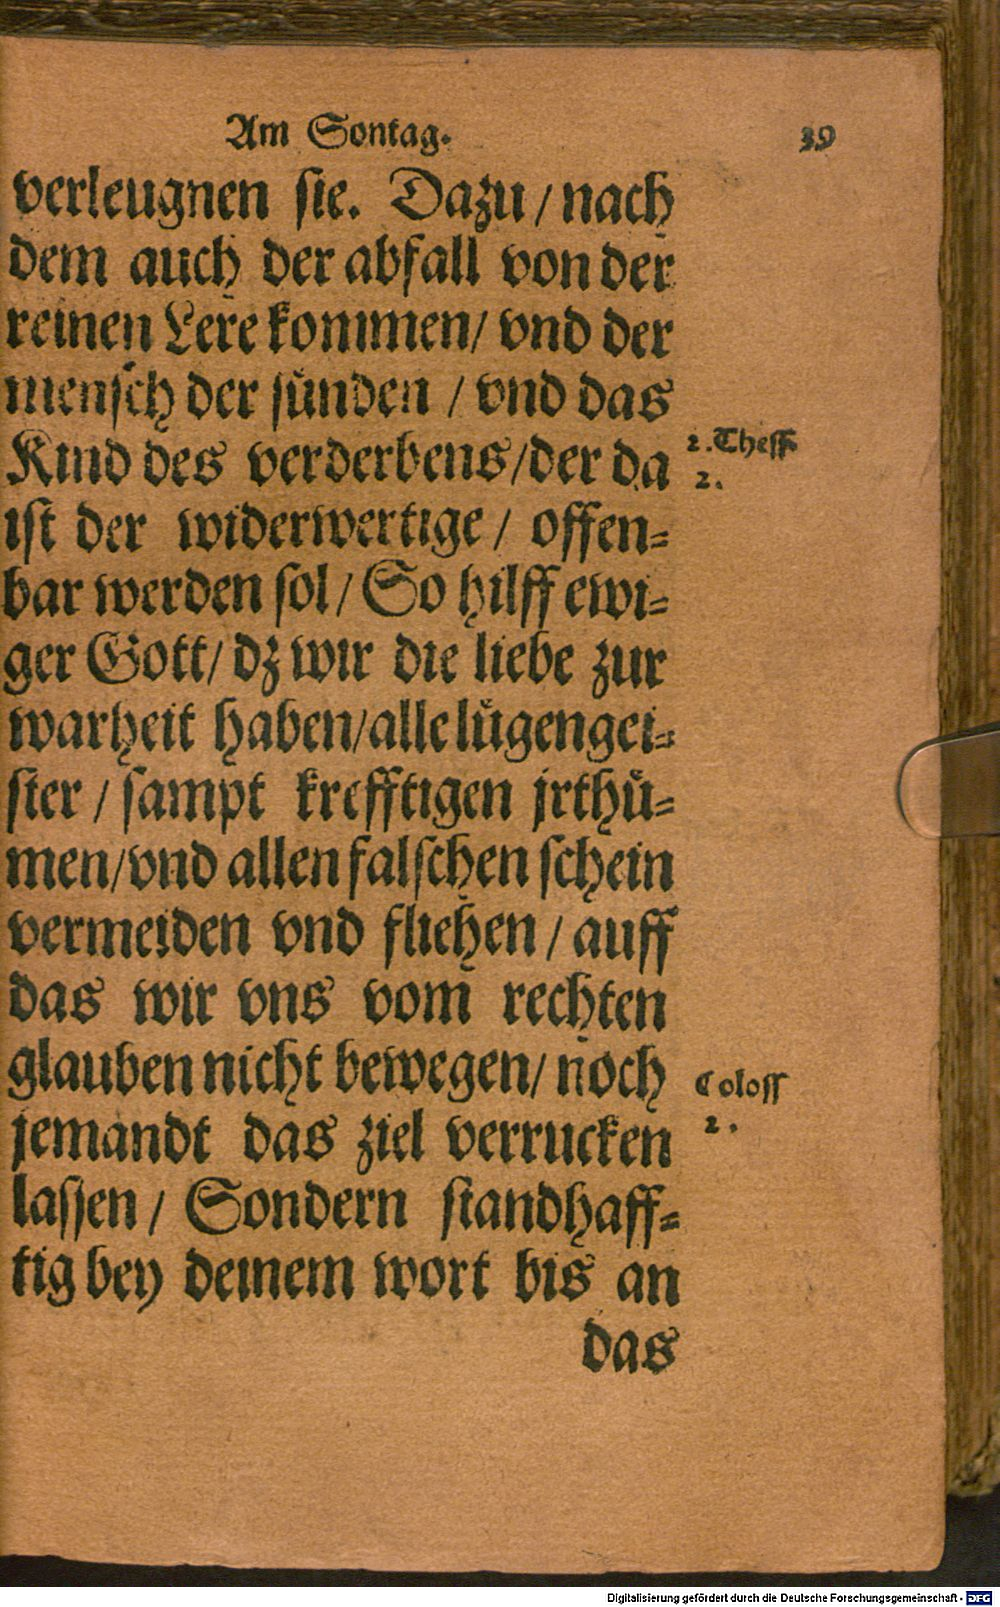 Am Sontag. 39
verleugnen sie. Dazu / nach
dem auch der abfall von der
reinen Lere kommen / vnd der
mensch der sünden / vnd das
Kind des verderbens / der da
2. Thess.
2.
ist der widerwertige / offen=
bar werden sol / So hilff ewi=
ger Gott / dz wir die liebe zur
warheit haben / alle lügengei=
ster / sampt krefftigen jrthü=
men / vnd allen falschen schein
vermeiden vnd fliehen / auff
das wir vns vom rechten
glauben nicht bewegen / noch
Coloss
2.
jemandt das ziel verrucken
lassen / Sondern standhaff=
tig bey deinem wort bis an
das
Digitalisierung gefördert durch die Deutsche Forschungsgemeinschaft - DFG